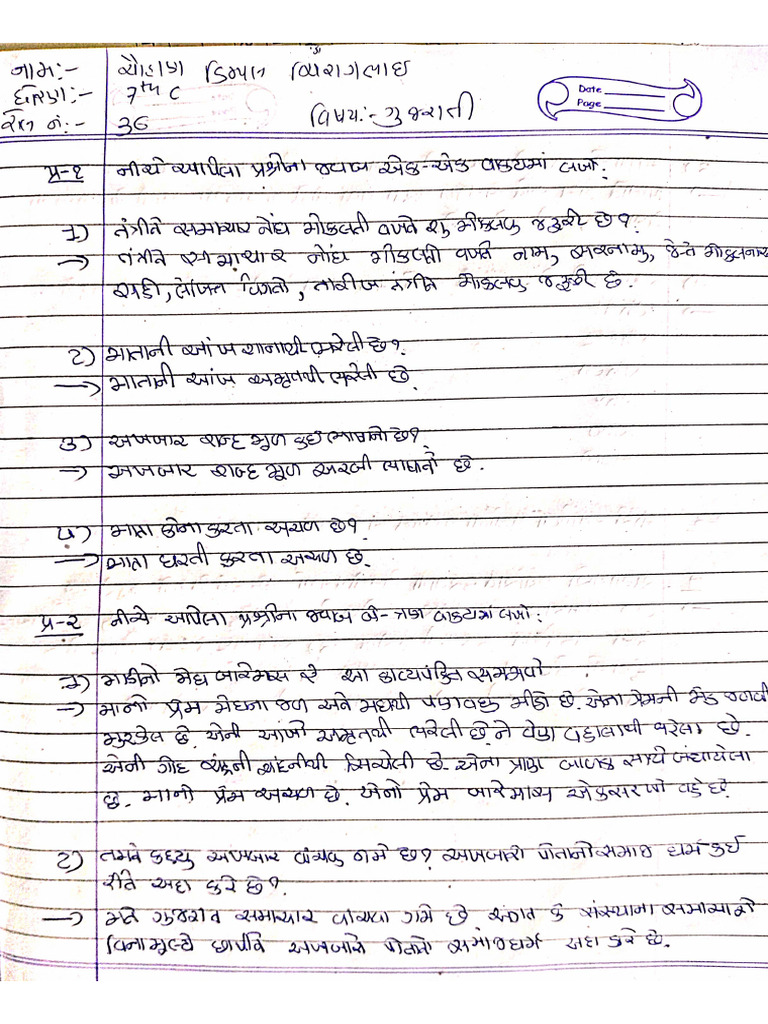 નામ:- ચૌહાણ ડિમ્પલ ચિરાગભાઇ
ધોરણ:- 7th C
Date
Page
રોલ નં:- 36 વિષય:- ગુજરાતી
પ્ર-૧ નીચે આપેલા પ્રશ્નોના જવાબ એક-એક વાક્યમાં લખો:
1) તંત્રીને સમાચાર નોંધ મોકલતી વખતે શુ મોકલવુ જરૂરી છે?
→ તંત્રીને સમાચાર નોંધ મોકલતી વખતે નામ, સરનામુ, જે-તે મોકલનાર
સહી, તારીખ તંત્રીને મોકલવુ જરૂરી છે.
2) માતાની આંખ શાનાથી ભરેલી છે?
→ માતાની આંખ અમૃતથી ભરેલી છે.
3) અખબાર શબ્દ મૂળ કઇ ભાષાનો છે?
→ અખબાર શબ્દ મૂળ અરબી ભાષાનો છે.
૫) માતા કોના કરતા અચળ છે?
→ માતા ધરતી કરતા અચળ છે.
પ્ર-૨ નીચે આપેલા પ્રશ્નોના જવાબ બે-ત્રણ વાક્યમાં લખો:
1) માડીનો મેહ બારેમાસ રે આ કાવ્યપંક્તિ સમજાવો
→ માનો પ્રેમ મેઘના જળ અને મધથી પણ વધુ મીઠો છે. એના પ્રેમની જોડ જડવી
મુશ્કેલ છે. એની આંખો અમૃતથી ભરેલી છે ને વેણ વહાલથી ભરેલા છે.
એની ગોદ ચંદ્રની ચાંદનીથી સિંચેલી છે. એના પ્રાણ બાળક સાથે બંધાયેલા
છે. માનો પ્રેમ અચળ છે. એનો પ્રેમ બારેમાસ એકસરખો વહે છે
2) તમને કયુ અખબાર વાંચવુ ગમે છે? અખબારો પોતાનો સમાજ ધર્મ કઇ
રીતે અદા કરે છે?
→ મને ગુજરાત સમાચાર વાંચવા ગમે છે. અંગત કે સંસ્થાના સમાચારો
વિનામૂલ્યે છાપીને અખબારો પોતાનો સમાજધર્મ અદા કરે છે.